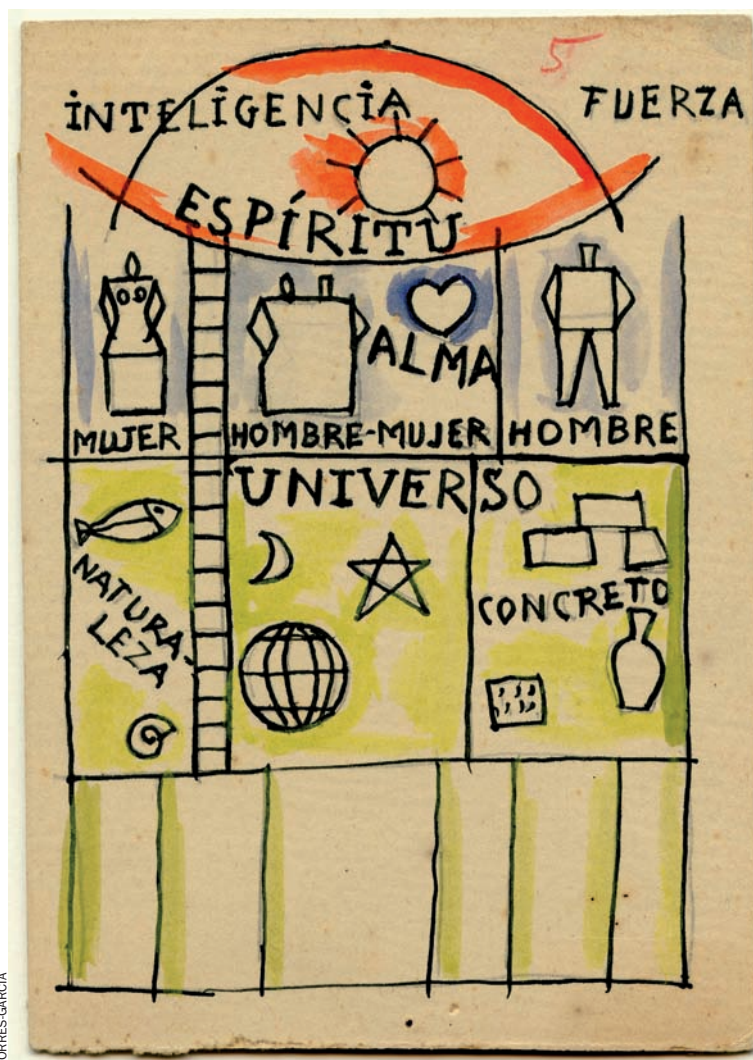 5
INTELIGENCIA
FUERZA
ESPÍRITU
ALMA
MUJER
HOMBRE-MUJER
HOMBRE
UNIVERSO
NATURA-
LEZA
CONCRETO